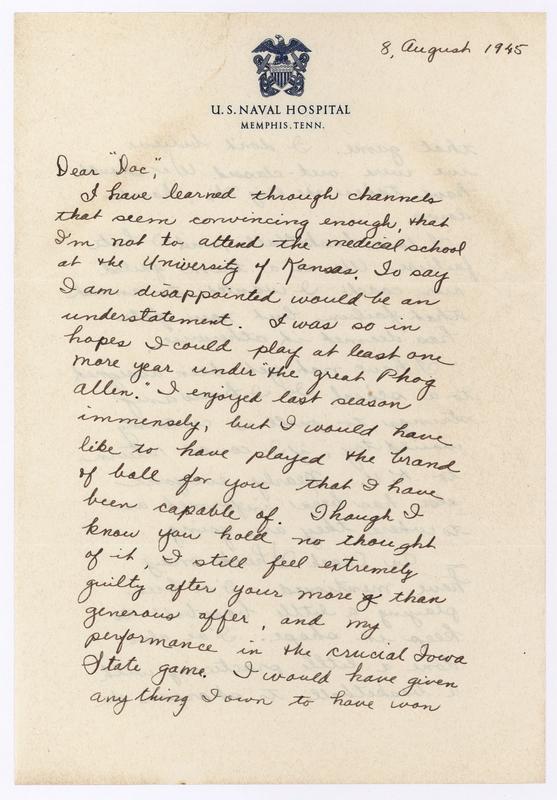 8, August 1945
U.S. NAVAL HOSPITAL
MEMPHIS, TENN.
Dear "Doc",
I have learned through channels
that seem convincing enough, that
I'm not to attend the medical school
at the University of Kansas. To say
I am disappointed would be an
understatement. I was so in
hopes I could play at least one
more year under "the great Phog
Allen." I enjoyed last season
immensely, but I would have
like to have played the brand
of ball for you that I have
been capable of. Though I
know you hold no thought
of it, I still feel extremely
guilty after your more than
generous offer, and my
performance in the crucial Iowa
State game. I would have given
anything I own to have won